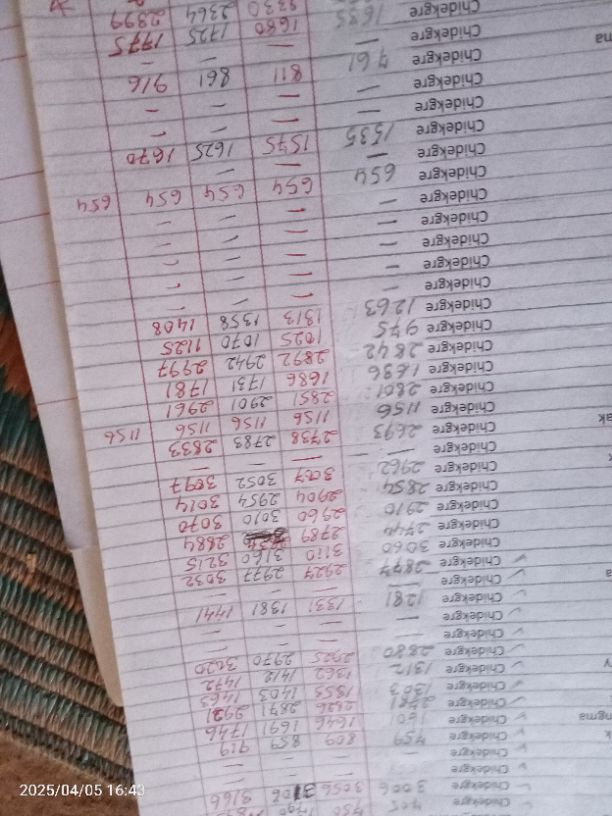 Chidekgre 705 750
Chidekgre 3006 3056 3106 3166
Chidekgre — — — —
Chidekgre — — — —
Chidekgre 759 809 859 919
ngma Chidekgre 1601 1646 1691 1746
Chidekgre 2781 2826 2871 2921
Chidekgre 1303 1353 1403 1463
Chidekgre 1312 1362 1412 1472
Chidekgre 2880 2925 2970 3020
Chidekgre — — — —
Chidekgre — — — —
Chidekgre 1281 1331 1381 1441
Chidekgre — — — —
Chidekgre 2877 2927 2977 3032
Chidekgre 3060 3110 3160 3215
Chidekgre 2744 2789 2884
Chidekgre 2910 2960 3010 3070
Chidekgre 2854 2904 2954 3014
Chidekgre 2962 3007 3052 3097
Chidekgre — — — —
ak Chidekgre 2693 2738 2783 2833
Chidekgre 1156 1156 1156 1156 1156
Chidekgre 2801 2851 2901 2961
Chidekgre 1636 1686 1731 1781
Chidekgre 2842 2892 2942 2997
Chidekgre 975 1025 1070 1125
Chidekgre 1263 1313 1358 1408
Chidekgre — — — —
Chidekgre — — — —
Chidekgre — — — —
Chidekgre — — — —
Chidekgre — — — —
Chidekgre 654 654 654 654 654
Chidekgre — — — —
Chidekgre 1535 1575 1625 1670
Chidekgre — — — —
Chidekgre — — — —
Chidekgre 761 811 861 916
ma Chidekgre — — — —
Chidekgre 1635 1680 1725 1775
Chidekgre
2025/04/05 16:43